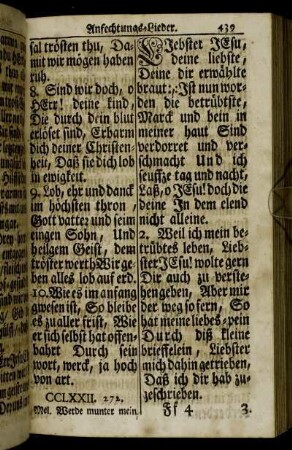 Anfechtungs-Lieder. 439
sal trösten thu, Da-
mit wir mögen haben
ruh.
8. Sind wir doch, o
HErr! deine kind,
Die durch dein blut
erlöset sind, Erbarm
dich deiner Christen-
heit, Daß sie dich lob
in ewigkeit.
9. Lob, ehr und danck
im höchsten thron,
Gott vatter und seim
eingen Sohn, Und
heilgem Geist, dem
tröster werth Wir ge-
ben alles lob auf erd.
10. Wie es im anfang
gwesen ist, So bleibe
es zu aller frist, Wie
er sich selbst hat offen-
bahrt Durch sein
wort, werck, ja hoch
von art.
CCLXXII. 272.
Mel. Werde munter mein
LIebster JEsu,
deine liebste,
Deine dir erwählte
braut:,: Ist nun wor-
den die betrübtste,
Marck und bein in
meiner haut Sind
verdorret und ver-
schmacht Und ich
seuffze tag und nacht,
Laß, o JEsu! doch die
deine In dem elend
nicht alleine.
2. Weil ich mein be-
trübtes leben, Lieb-
ster JEsu! wolte gern
Dir auch zu verste-
hen geben, Aber mir
der weg so fern, So
hat meine liebes-pein
Durch diß kleine
brieffelein, Liebster
mich dahin getrieben,
Daß ich dir hab zu-
geschrieben.
Ff 4 3.